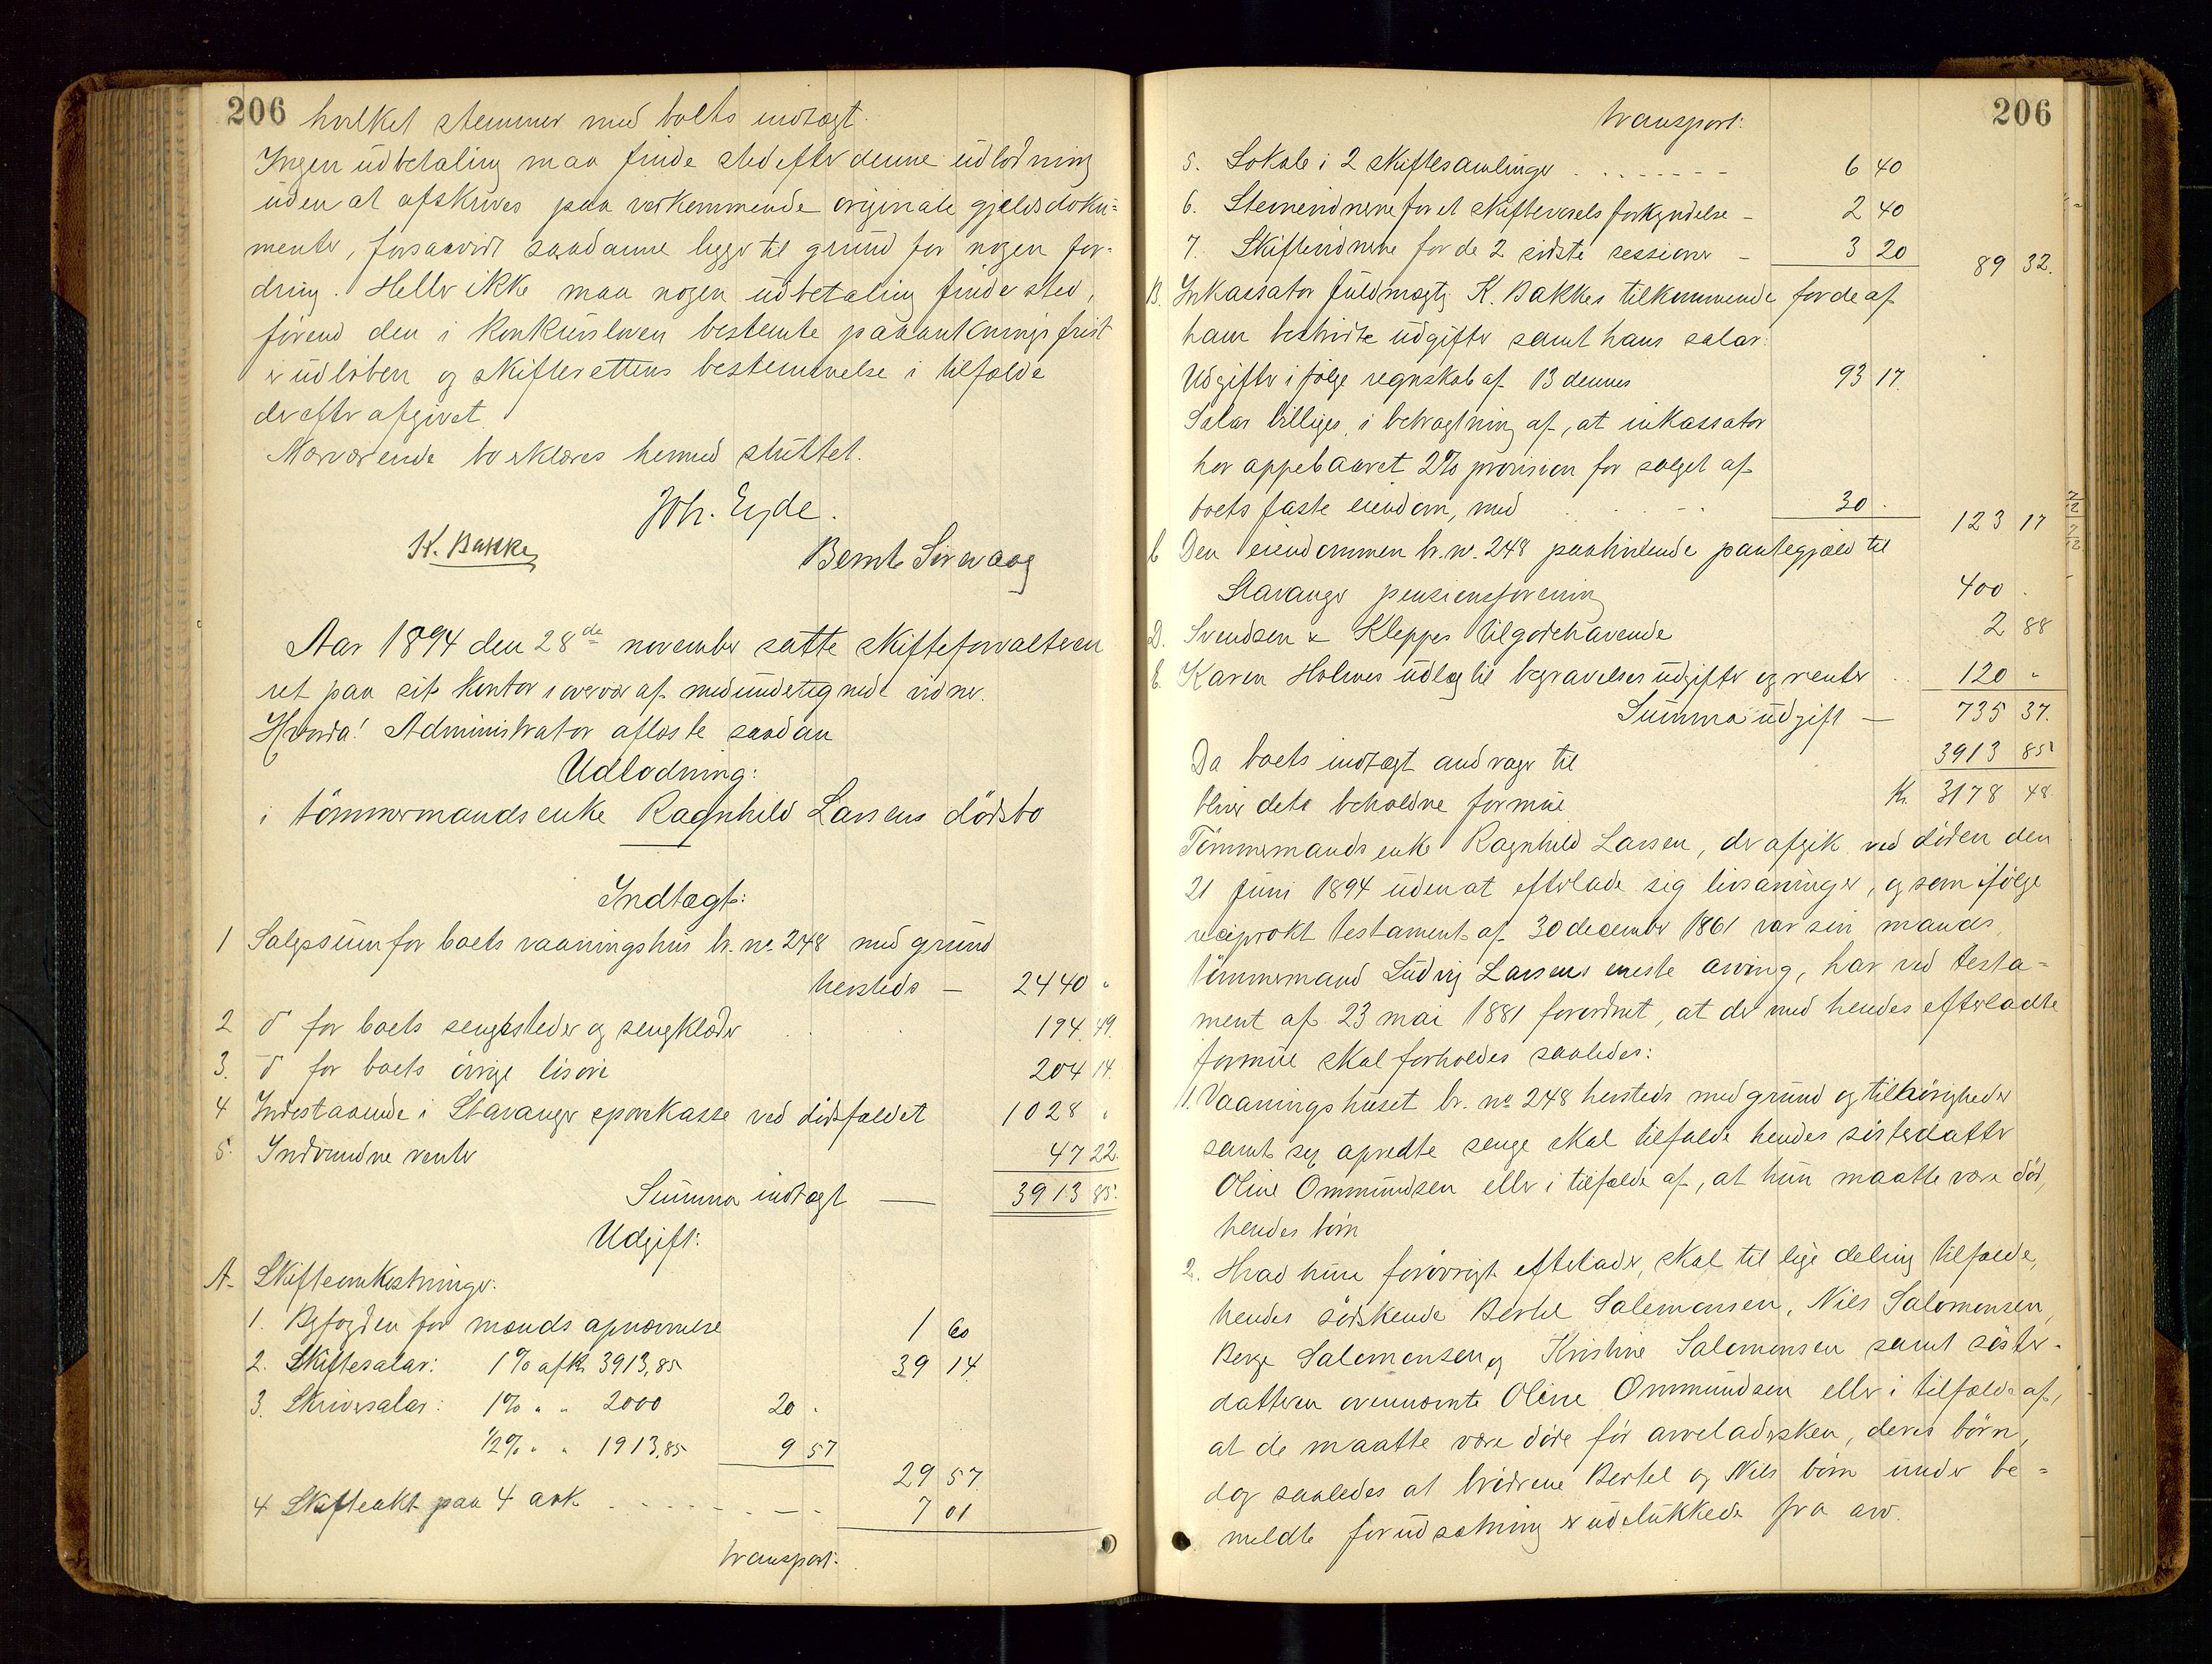 206
hvilket stemmer med boets indtægt.
Ingen udbetaling maa finde sted efter denne udlodning
uden at afskrives paa vedkommende originale gjældsdoku=
menter, forsaavidt saadanne ligger til grund for nogen for=
dring. Heller ikke maa nogen udbetaling finde sted,
førend den i konkursloven bestemte paaankningsfrist
er udløben og skifterettens bestemmelse i tilfælde
derefter afgivet.
Nærværende bo erklæres hermed sluttet.
Joh. Eyde.
K. Bakke
Bernt Sirevaag
Aar 1894 den 28de november satte skifteforvalteren
ret paa sit kontor i overvær af medundertegnede vidner.
Hvorda! Administrator afløste saadan
Udlodning:
i tømmermandsenke Ragnhild Larsens dødsbo
Indtægt:
1 Salgssum for boets vaaningshus br. no. 248 med grund
hersteds — 2440 "
2 do for boets sengesteder og sengklæder 194.49.
3. do for boets øvrige løsøre 204 14.
4 Indestaaende i Stavanger sparekasse ved dødsfaldet 1028 "
5. Indvundne renter 47 22.
Summa indtægt — 3913 85.
Udgift:
A. Skifteomkostninger:
1. Byfogden for mænds opnævnelse 1 60
2. Skiftesalær: 1% af kr. 3913,85 39 14.
3. Skriversalær: 1% " " 2000 20 "
1/2% " " 1913,85 9 57
29 57.
4 Skifteakt paa 4 ark 7 01
transport:
206
transport:
5. Lokale i 2 skiftesamlinger 6 40
6. Stevnevidnerne for et skiftevarsels forkyndelse – 2 40
7. Skiftevidnerne for de 2 sidste sessioner – 3 20
89 32.
B. Inkassator fuldmægtig K. Bakkes tilkommende for de af
ham bestridte udgifter samt hans salær:
Udgifter ifølge regnskab af 13 dennes 93 17.
Salær billiges, i betragtning af, at inkassator
har oppebaaret 2% provision for salget af
boets faste eiendom, med 30 "
123 17
C Den eiendommen br. no. 248 paahvilende pantegjæld til
Stavanger pensionsforening 400 "
D. Svendsen & Kleppes tilgodehavende 2 88
E. Karen Holmes udlæg til begravelsesudgifter og renter 120 "
Summa udgift — 735 37.
Da boets indtægt andrager til 3913 85
bliver dets beholdne formue Kr. 3178 48
Tømmermandsenke Ragnhild Larsen, der afgik ved døden den
21 juni 1894 uden at efterlade sig livsarvinger, og som ifølge
reciprokt testament af 30 december 1861 var sin mands,
tømmermand Ludvig Larsens eneste arving, har ved testa=
ment af 23 mai 1881 forordnet, at der med hendes efterladte
formue skal forholdes saaledes:
1. Vaaningshuset br. no 248 hersteds med grund og tilhørigheder
samt sex opredte senge skal tilfalde hendes søsterdatter
Oline Ommundsen eller i tilfælde af, at hun maatte være død,
hendes børn
2. Hvad hun forøvrigt efterlader, skal til lige deling tilfalde,
hendes sødskende Bertel Salomonsen, Nils Salomonsen,
Berge Salomonsen og Kristine Salomonsen samt søster-
datteren ovennævnte Oline Ommundsen eller i tilfælde af,
at de maatte være døde før arveladersken, deres børn,
dog saaledes at brødrene Bertel og Nils børn under be=
meldte forudsætning er udelukkede fra arv.